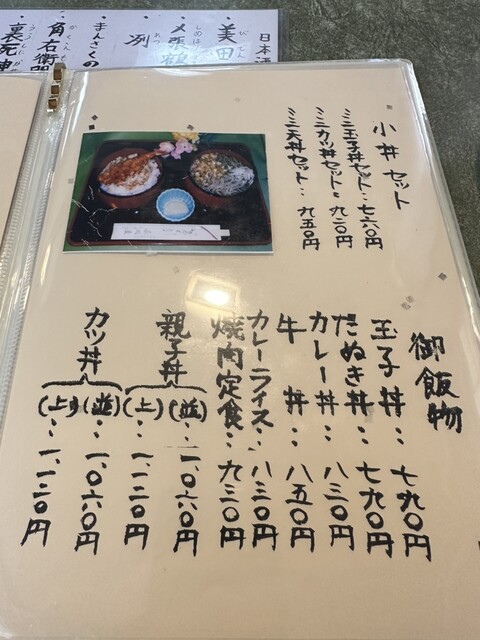 日本酒
美田
〆張鶴
冽
まんさくの
角右衛門
小丼セット
ミニ玉子丼セット‥七六〇円
ミニカツ丼セット‥九二〇円
ミニ天丼セット‥九五〇円
御飯物
玉子丼‥七九〇円
たぬき丼‥七九〇円
カレー丼‥八三〇円
牛丼‥八五〇円
カレーライス‥八三〇円
焼肉定食‥九三〇円
親子丼
(並)‥一、〇六〇円
(上)‥一、一二〇円
カツ丼
(並)‥一、〇六〇円
(上)‥一、一二〇円